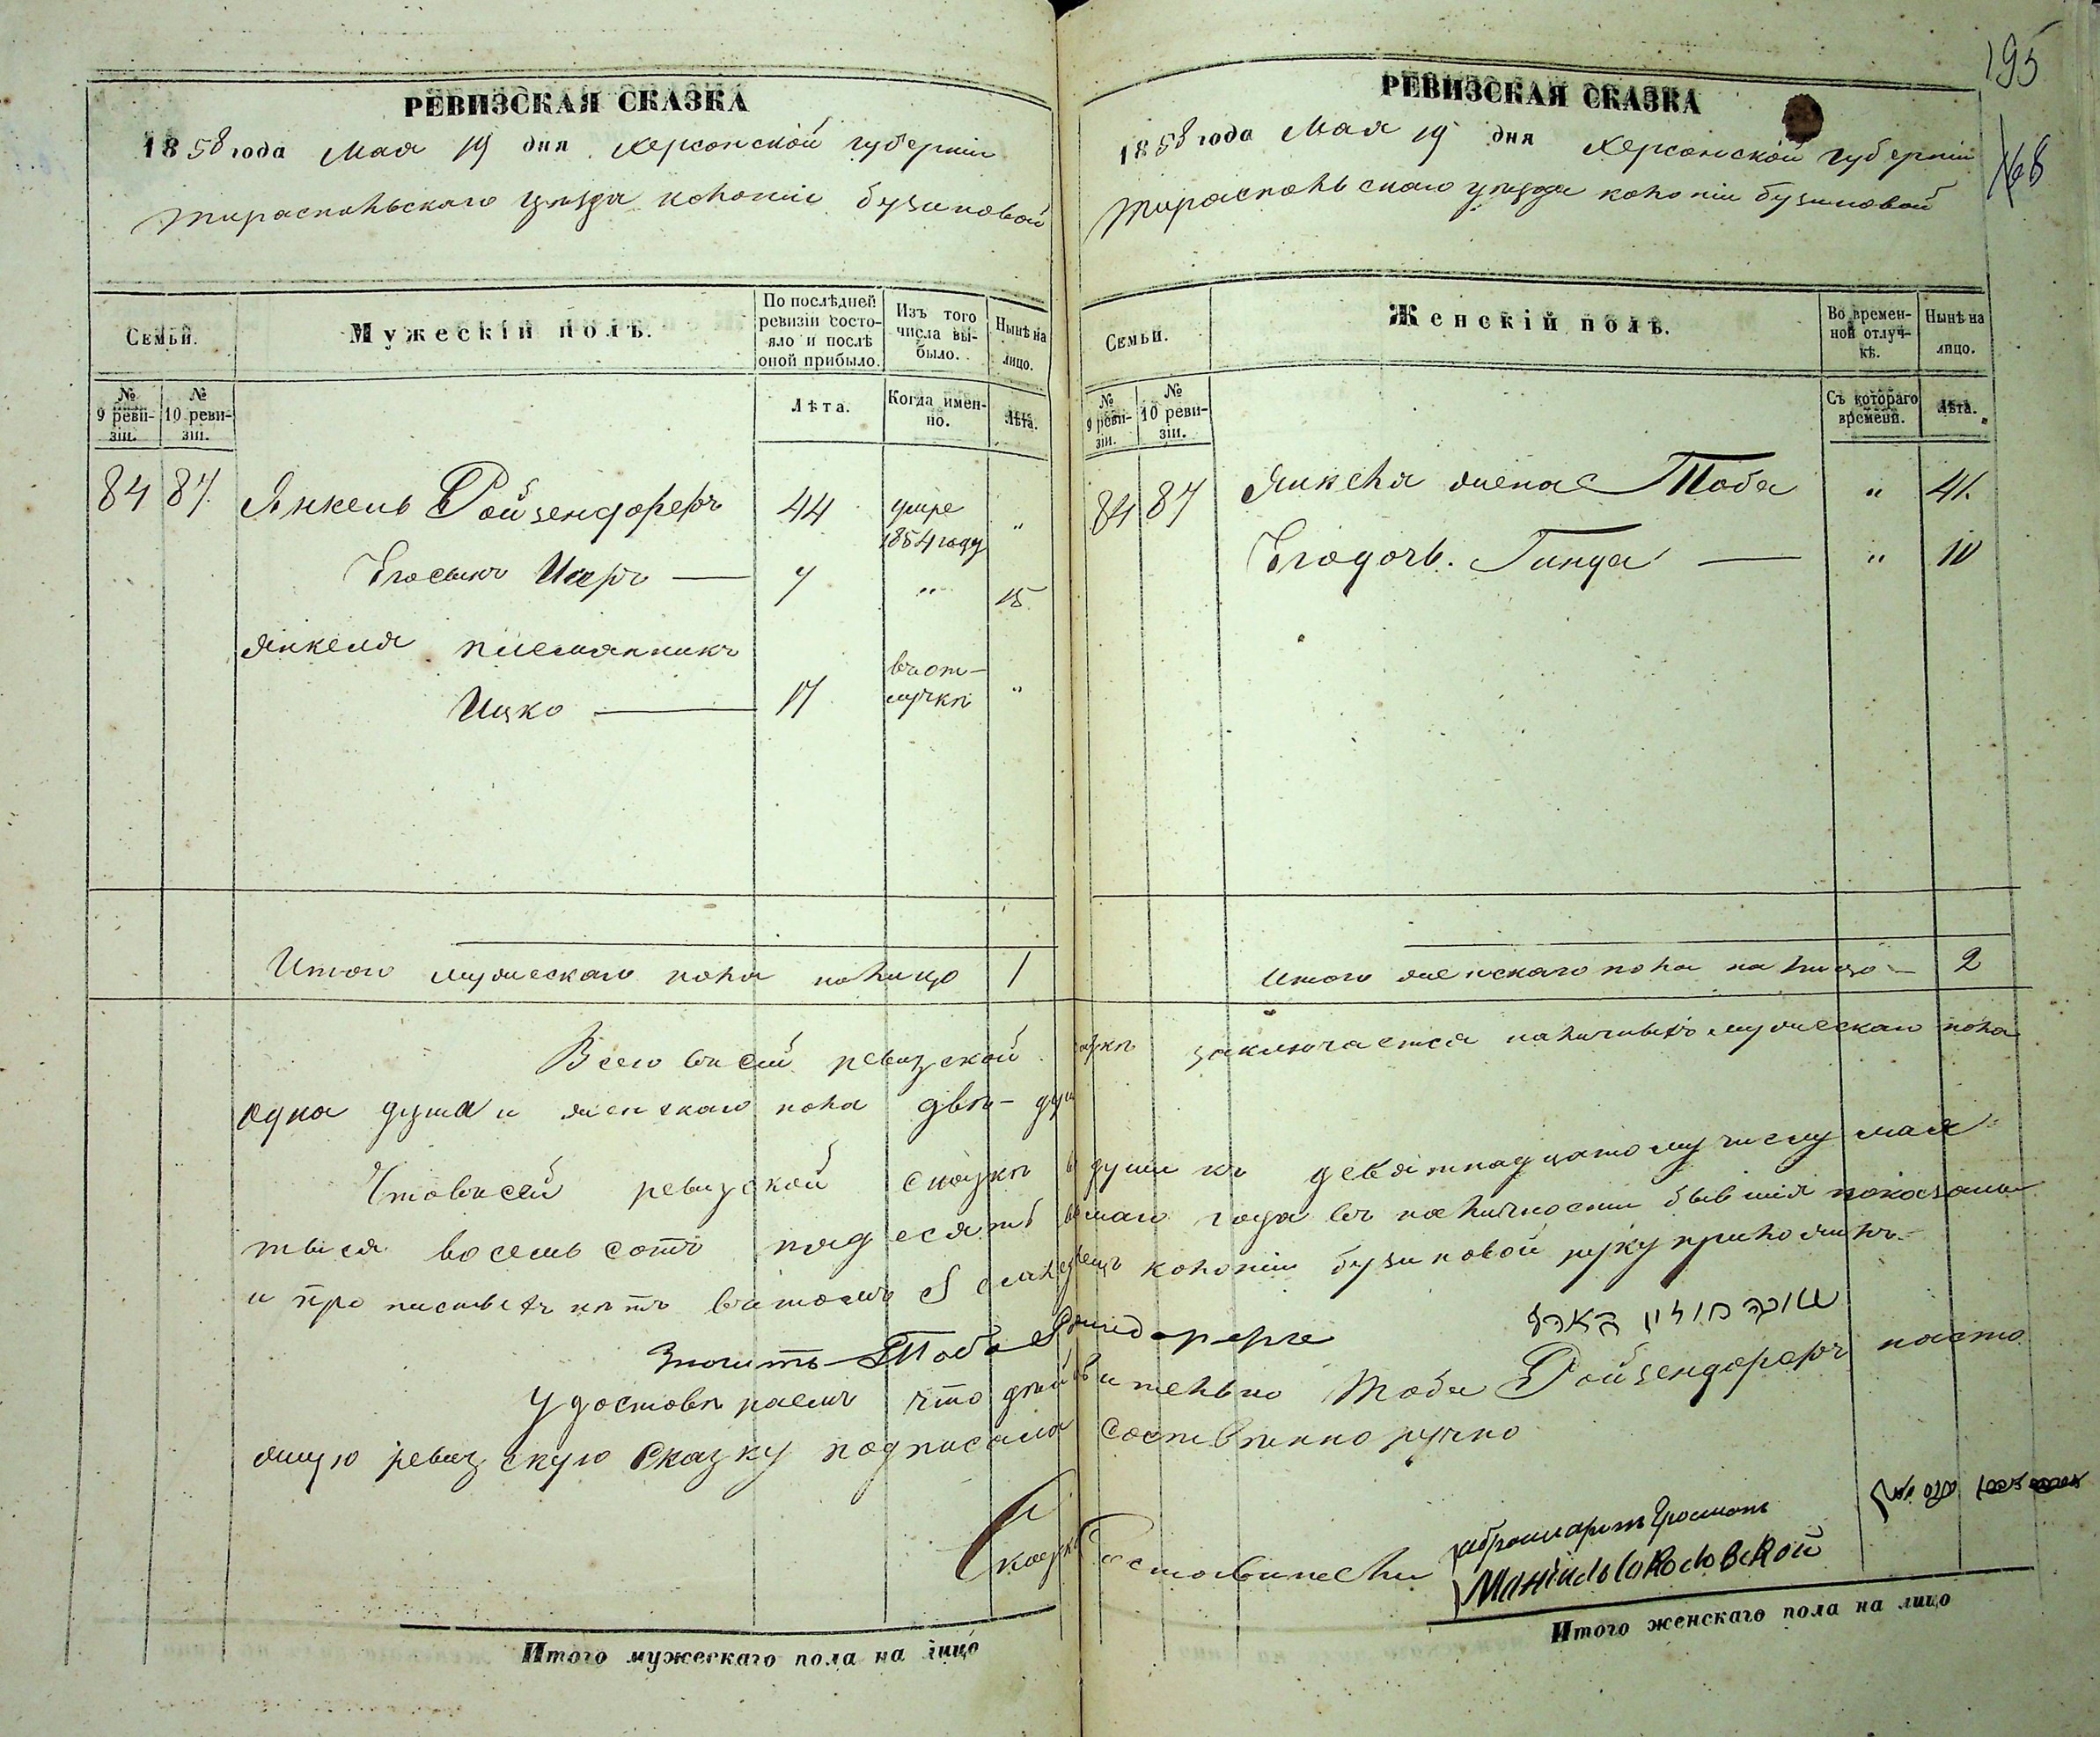 195
№ 8
РЕВИЗСКАЯ СКАЗКА
1858 года Мая 19 дня Херсонской губернии
Тираспольскаго уѣзда колоніи бузиновой
Семьи.
Мужескій полъ.
По послѣдней ревизіи состояло и послѣ оной прибыло.
Изъ того числа выбыло.
Нынѣ на лицо.
№ 9 ревизіи.
№ 10 ревизіи.
Лѣта.
Когда именно.
Лѣта.
84 87 Янкель Ройзендорферъ 44 умре 1854 году "
Его сынъ 7 " 15
Янкеля племянникъ
Ицко 17 въ отлучкѣ "
Итого мужескаго пола на лицо 1
РЕВИЗСКАЯ СКАЗКА
1858 года Мая 19 дня Херсонской губерніи
Тираспольскаго уѣзда колоніи бузиновой
Семьи.
Женскій полъ.
Во временной отлучкѣ.
Нынѣ на лицо.
№ 9 ревизіи.
№ 10 ревизіи.
Съ котораго времени.
Лѣта.
84 87 Янкеля жена Тоба " 41.
Его дочь. Гинда — " 10
Итого женскаго пола на лицо — 2
Всего въ сей ревизской сказкѣ заключается наличныхъ мужескаго пола
одна душа и женскаго пола двѣ душ
Что въ сей ревизской сказкѣ души къ девятнадцатому числу мая
тысяча восемь сотъ пядесятъ года въ наличности бывшія показаны
и прописныхъ нѣтъ въ томъ колоніи бузиновой руку приложилъ
Значитъ Тоба
Удостовѣряемъ что дѣйствительно Тоба Ройзендорферъ насто
ящую ревизскую сказку подписала собственно ручно
Сказко Составители
Итого мужескаго пола на лицо
Итого женскаго пола на лицо